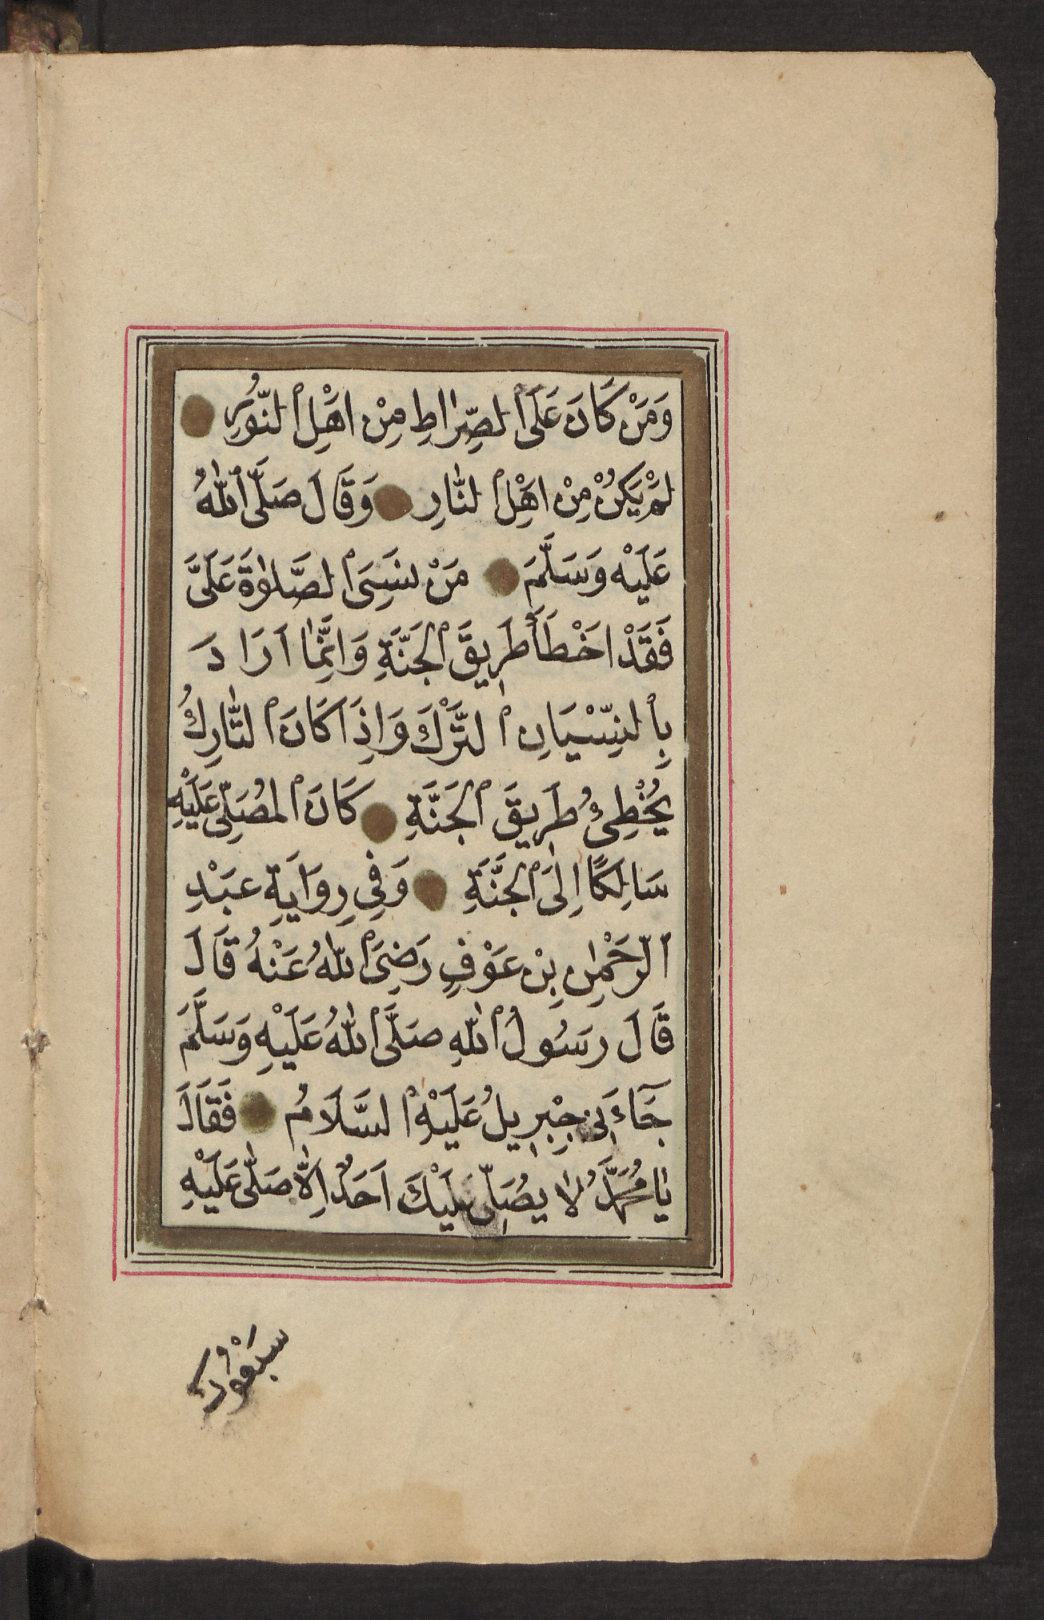 وَمَنْ كَانَ عَلَى الصِّرَاطِ مِنْ اَهْلِ النُّورِ
لَمْ يَكُنْ مِنْ اَهْلِ النَّارِ وَقَالَ صَلَّى اللّٰهُ
عَلَيْهِ وَسَلَّمَ مَنْ نَسِىَ الصَّلٰوةَ عَلَىَّ
فَقَدْ اَخْطَأَ طَرِيقَ الْجَنَّةِ وَاِنَّمَا اَرَادَ
بِالنِّسْيَانِ التَّرْكَ وَاِذَا كَانَ التَّارِكُ
يُخْطِئُ طَرِيقَ الْجَنَّةِ كَانَ الْمُصَلِّى عَلَيْهِ
سَالِكًا اِلَى الْجَنَّةِ وَفِى رِوَايَةِ عَبْدِ
الرَّحْمٰنِ بِنْ عَوْفٍ رَضِىَ اللّٰهُ عَنْهُ قَالَ
قَالَ رَسُولُ اللّٰهِ صَلَّى اللّٰهُ عَلَيْهِ وَسَلَّمَ
جَآءَنِى جِبْرِيلُ عَلَيْهِ السَّلَامُ فَقَالَ
يَا مُحَمَّدُ لَا يُصَلِّى عَلَيْكَ اَحَدٌ اِلَّا صَلَّى عَلَيْهِ
سَبْعُونَ